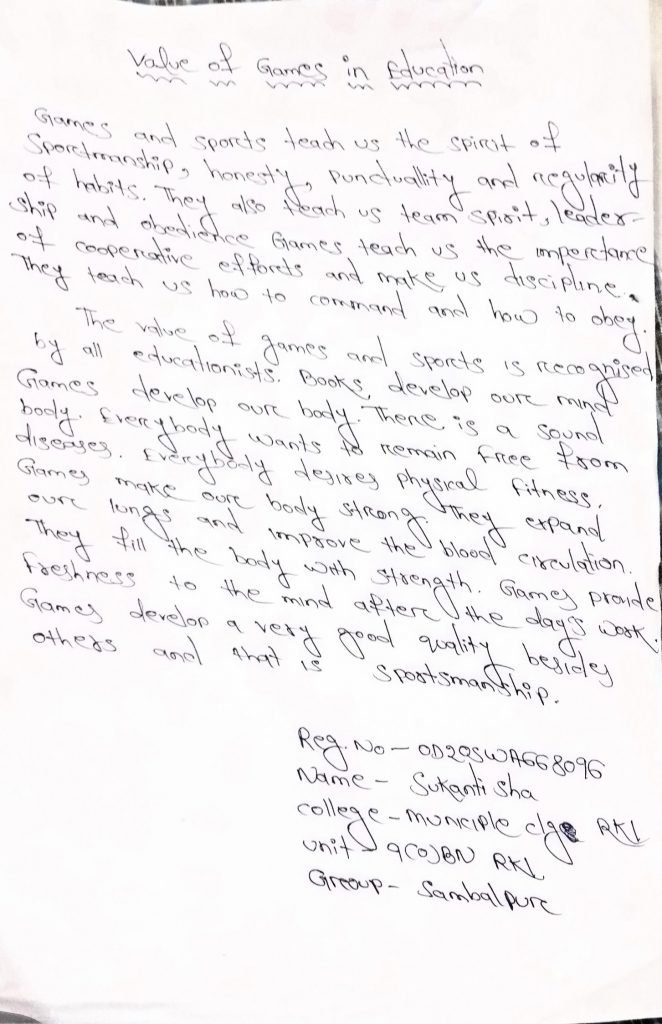 Value of Games in Education
Games and sports teach us the spirit of
Sporctmanship, honesty, punctuallity and regularity
of habits. They also teach us team spirit, leader-
ship and obedience Games teach us the imporctance
of cooperative efforts and make us discipline.
They teach us how to command and how to obey.
The value of games and sports is recognised
by all educationists. Books develop ourc mind
Games develop ourc body. There is a sound
body. Everybody wants to remain free from
diseases. Everybody desires physical fitness.
Games make ourc body strong. They expand
ourc lungs and improve the blood circulation.
They fill the body with strength. Games provide
freshness to the mind afterc the day's work.
Games develop a very good quality besides
others and that is sportsmanship.
Reg. No - OD20SWA668096
Name - Sukanti sha
college - municiple clge RKL
unit - 9(O)BN RKL
Group - Sambalpurc